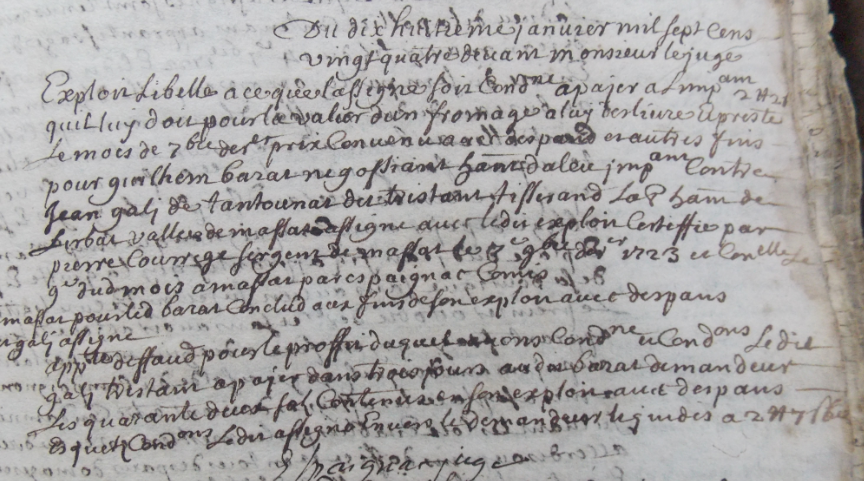 Du dix huitieme janvier mil sept cens
vingt quatre devant monsieur le juge
Exploit libellé a ce que lassigné soit Cond^ne a pajer a Limp^ant 2 ₶ 2 s
quil luy doit pour la valeur dun fromage a luy deslivré apresté
Le mois de 7bre der^er prix Convenu avec despans et autres fins
pour guilhem barat negossiant ha^nt daleu imp^ant Contre
Jean galj de tantounat dit tristant tisserand ha^nt de
Lirbat vallée de massat assigné avec ledit exploit Certiffié par
pierre Courrege sergent de massat le 3e 9bre der^er 1723 et Con^ellé Le
9e dud mois a massat par espaignac Comis
massat pour led barat Conclud aux fins de son exploit avec despans
galj assigné
app^llé deffaud pour le proffit duquel avons Cond^ne et Cond^ons Ledit
galj tristant a pajer dans trois jours aud barat demandeur
Les quarante deux sols Contenus en son exploit avec despans
Esquels Cond^ons Ledit assigné Envers le demandeur liquidés a 2 ₶ 7 s 6 d
juge